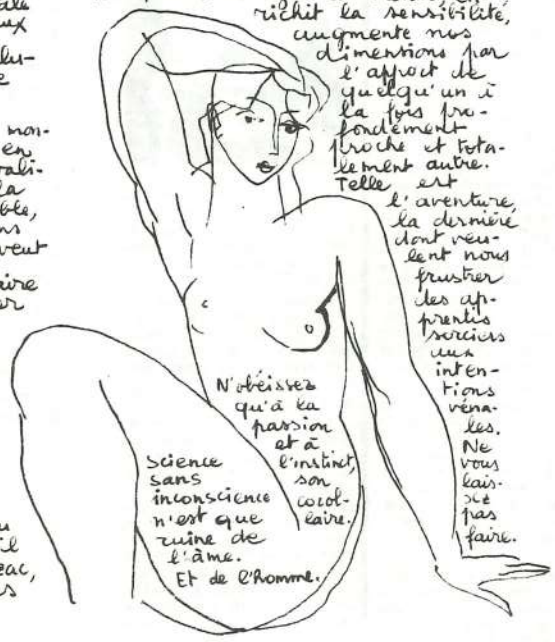 ale
ux
lus-
e
mon-
en
rali-
la
ble,
ns
veut
aire
er
u
il
zac,
s
richit la sensibilité,
augmente nos
dimensions par
l'apport de
quelqu'un à
la fois pro-
fondément
proche et tota-
lement autre.
Telle est
l'aventure,
la dernière
dont veu-
lent nous
frustrer
des ap-
prentis
sorciers
aux
inten-
tions
véna-
les.
Ne
vous
lais-
sez
pas
faire.
N'obéissez
qu'à la
passion
et à
l'instinct,
son
corol-
laire.
Science
sans
inconscience
n'est que
ruine de
l'âme.
Et de l'homme.